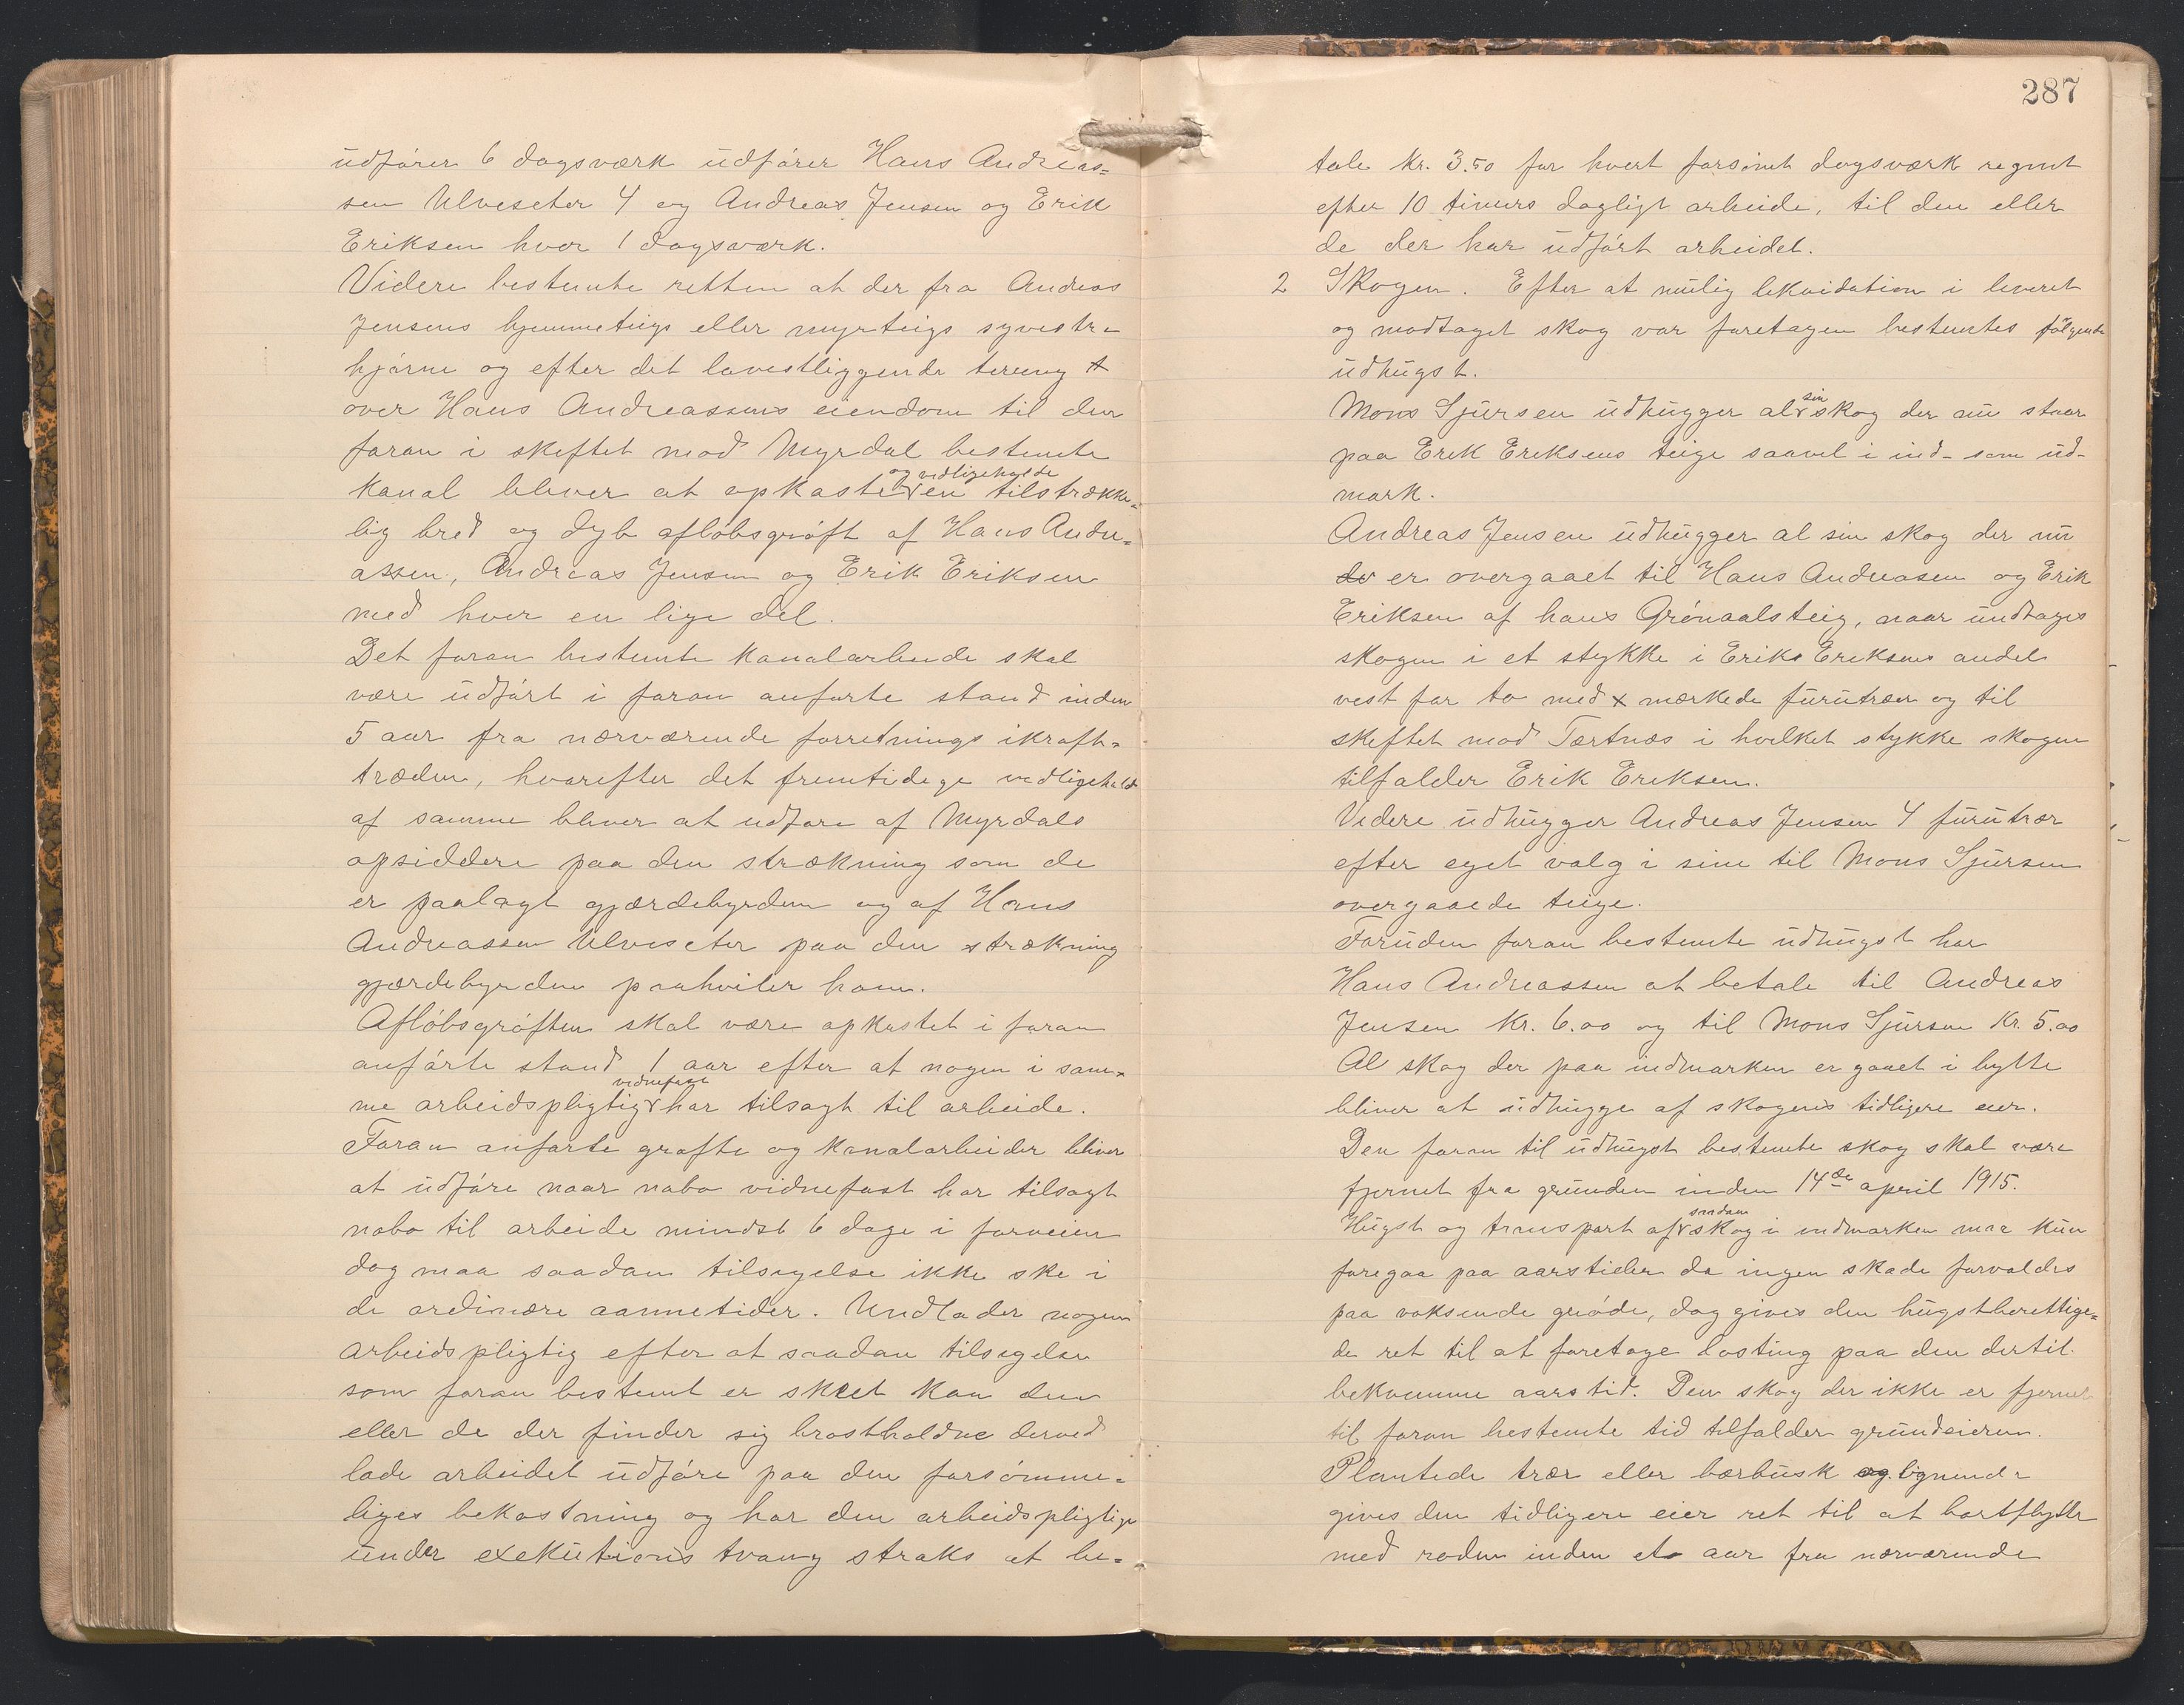 udfører 6 dagsværk udfører Hans Andreas=
sen Ulveseter 4 og Andreas Jensen og Erik
Eriksen hver 1 dagsværk.
Videre bestemte retten at der fra Andreas
Jensens hjemmeteigs eller myrteigs syvestre
hjørne og efter det lavestliggende tereng
over Hans Andreassens eiendom til den
foran i skeftet mod Myrdal bestemte
og vedligeholde
kanal bliver at opkaste en tilstrække=
lig bred og dyb afløbsgrøft af Hans Andre=
assen, Andreas Jensen og Erik Eriksen
med hver en lige del.
Det foran bestemte kanalarbeide skal
være udført i foran anførte stand inden
5 aar fra nærværende forretnings ikraft=
træden, hvorefter det fremtidige vedligehold
af samme bliver at udføre af Myrdals
opsiddere paa den strækning som de
er paalagt gjærdebyrden og af Hans
Andreassen Ulveseter paa den strækning
gjærdebyrden paahviler ham.
Afløbsgrøften skal være opkastet i foran
anførte stand 1 aar efter at nogen i sam=
vidnefast
me arbeidspligtig har tilsagt til arbeide.
Foran anførte grøfte og kanalarbeider bliver
at udføre naar nabo vidnefast har tilsagt
nabo til arbeide mindst 6 dage i forveien
dog maa saadan tilsigelse ikke ske i
de ordinære aannetider. Undlader nogen
arbeidspligtig efter at saadan tilsigelse
som foran bestemt er skeet kan den
eller de der finder sig brøstholdne derved
lade arbeidet udføre paa den forsømme=
liges bekostning og har den arbeidspligtige
under exekutions tvang straks at be=
287
tale kr. 3.50 for hvert forsømt dagsværk regnet
efter 10 timers dagligt arbeide, til den eller
de der har udført arbeidet.
2 Skogen. Efter at mulig likvidation i leveret
og modtaget skog var foretagen bestemtes følgende
udhugst.
sin
Mons Sjursen udhugger al skog der nu staar
paa Erik Eriksens teige saavel i ind- som ud-
mark.
Andreas Jensen udhugger al sin skog der nu
er overgaaet til Hans Andreasen og Erik
Eriksen af hans Grønaalsteig, naar undtages
skogen i et stykke i Eriks Eriksens andel
vest for to med x mærkede furutrær og til
skeftet mod Tertnæs i hvilket stykke skogen
tilfalder Erik Eriksen.
Videre udhugger Andreas Jensen 4 furutrær
efter eget valg i sine til Mons Sjursen
overgaaede teige.
Foruden foran bestemte udhugst har
Hans Andreassen at betale til Andreas
Jensen kr. 6.00 og til Mons Sjursen kr. 5.00
Al skog der paa indmarken er gaaet i bytte
bliver at udhugge af skogens tidligere eier.
Den foran til udhugst bestemte skog skal være
fjernet fra grunden inden 14de april 1915.
saadan
Hugst og transport af skog i indmarken maa kun
foregaa paa aarstider da ingen skade forvoldes
paa voksende grøde, dog gives den hugstberettige=
de ret til at foretage løsting paa den dertil
bekvemme aarstid. Den skog der ikke er fjernet
til foran bestemte tid tilfalder grundeieren.
Plantede trær eller bærbusk og lignende
gives den tidligere eier ret til at bortflytte
med roden inden et aar fra nærværende